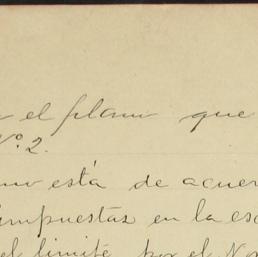 el plano que
Nº 2.
está de acuer
impuestas en la es
el limite por el No